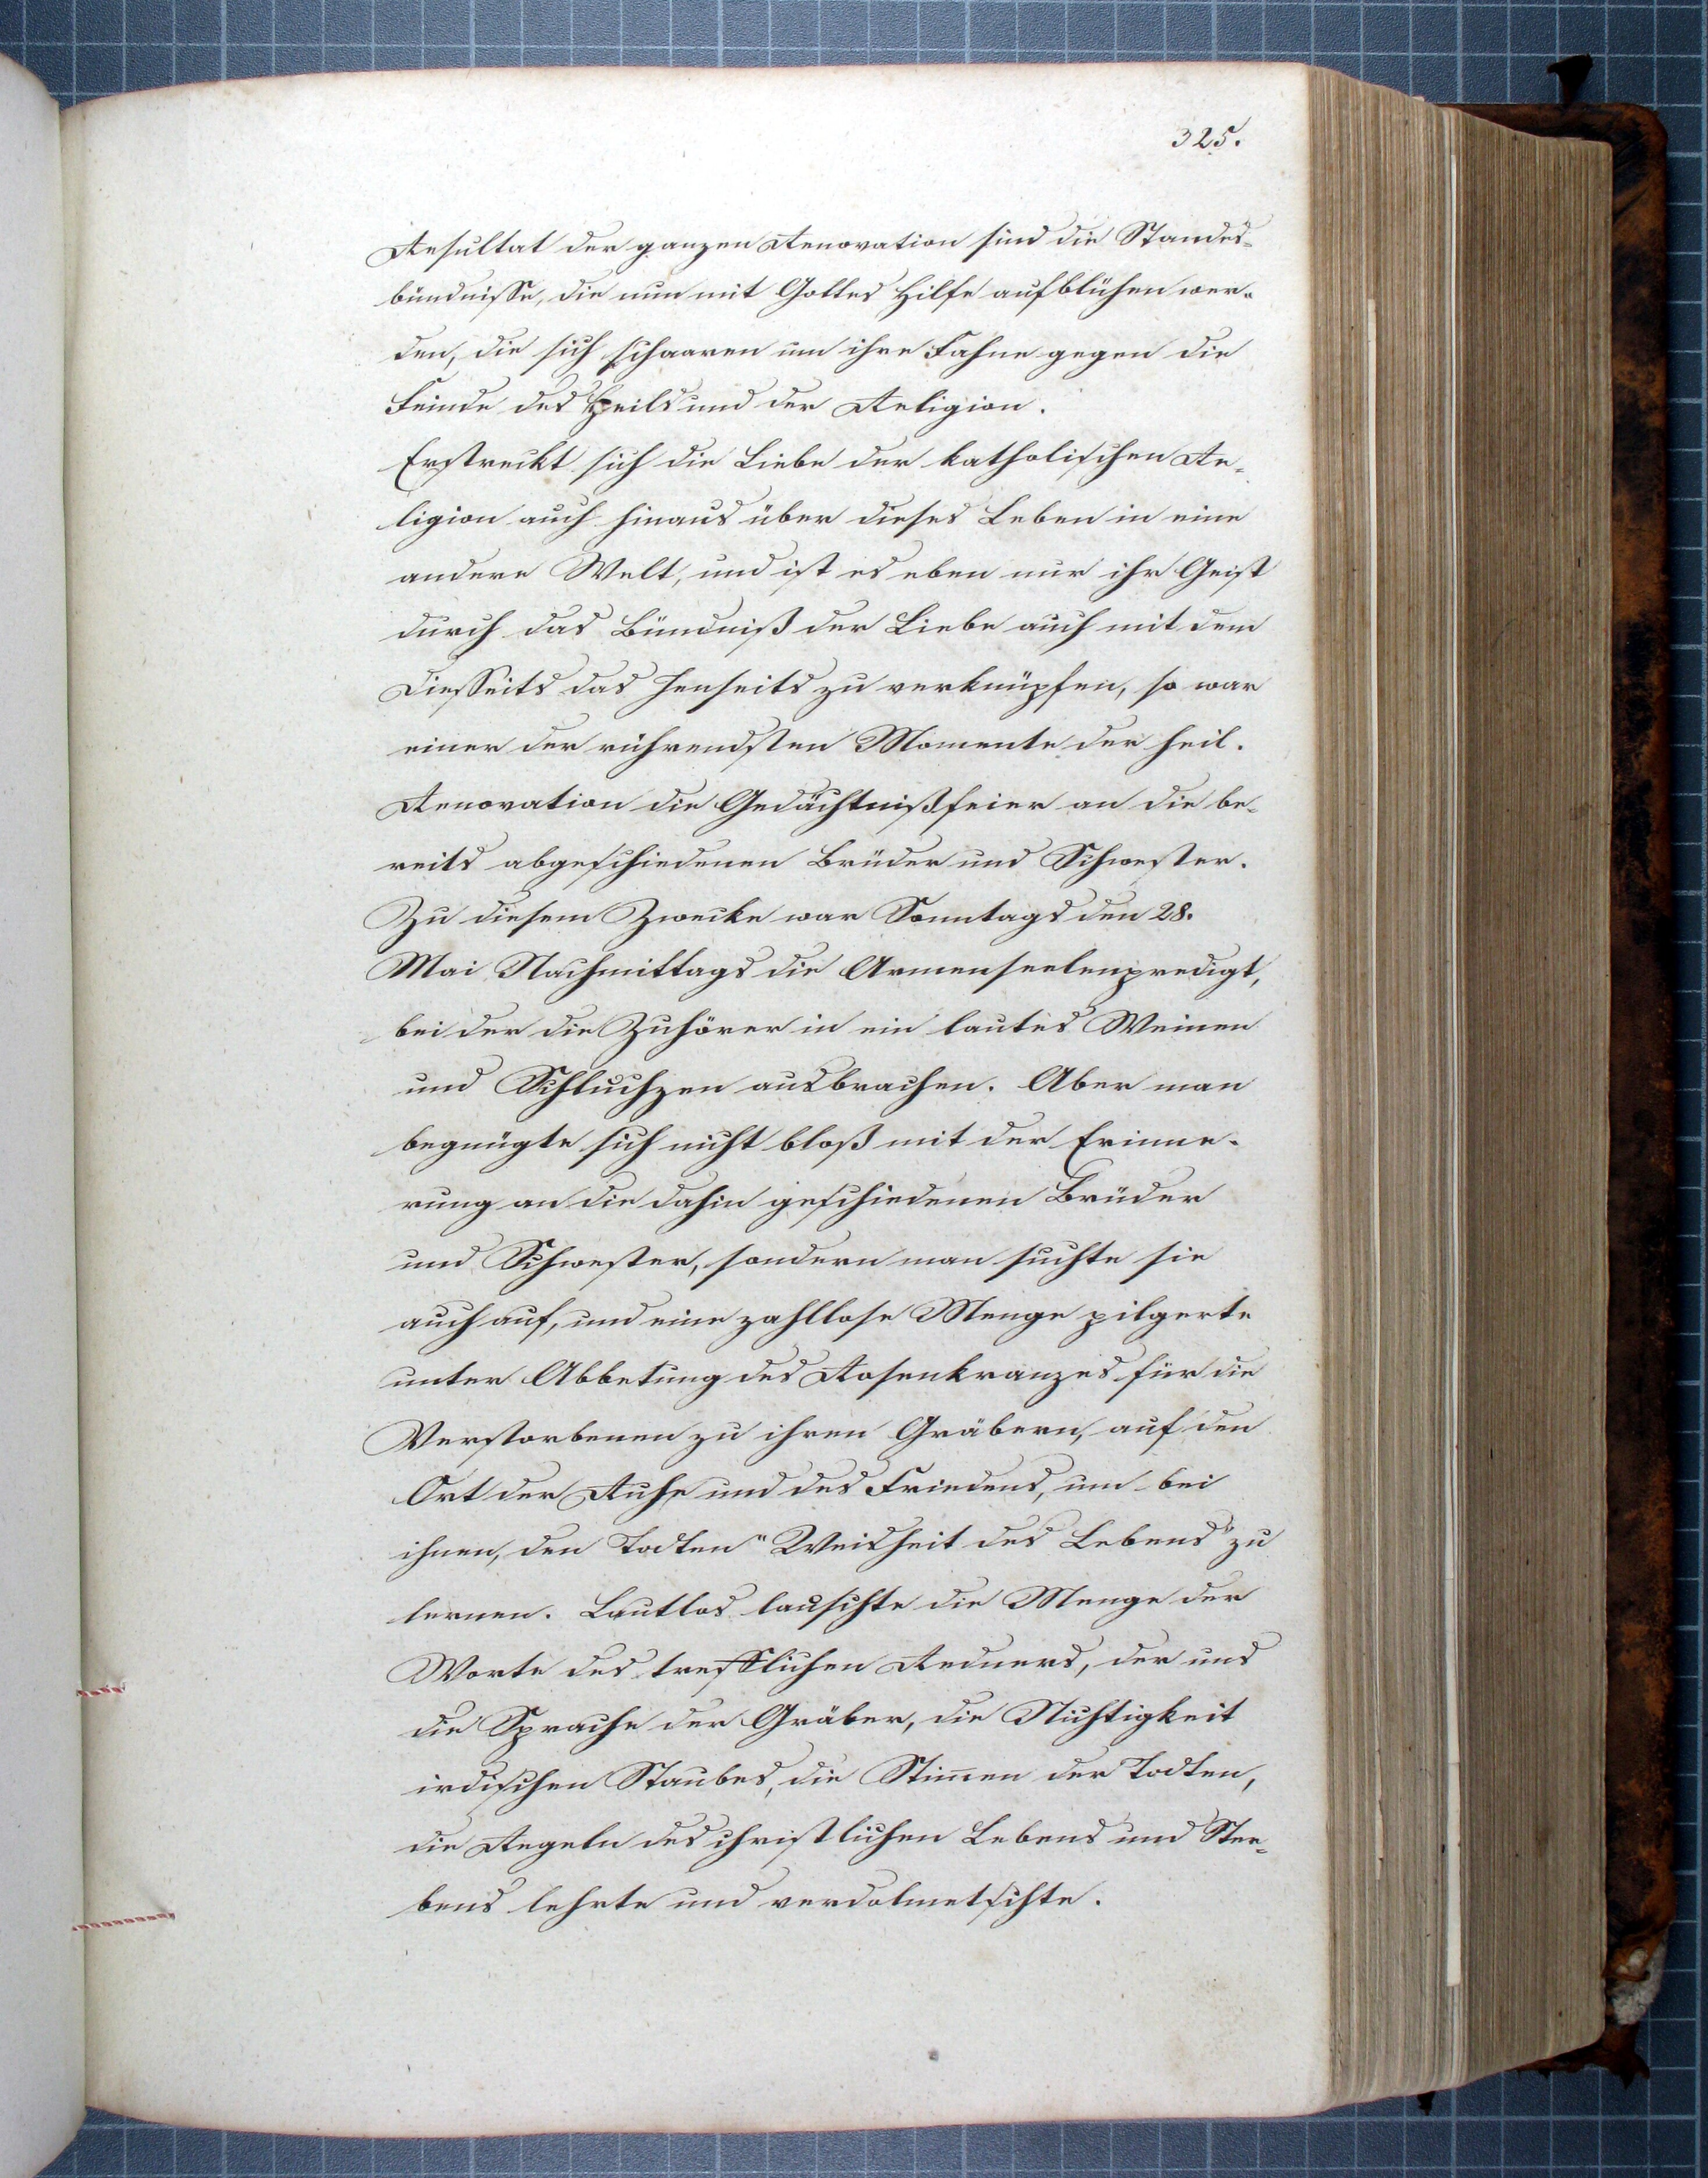 325.
Resultat der ganzen Renovation sind die Standes-
bündnisse, die nun mit Gottes Hilfe aufblühen wer-
den, die sich schaaren um ihre Fahne gegen die
Feinde des Heils und der Religion.
Erstreckt sich die Liebe der katholischen Re-
ligion auch hinaus über dieses Leben in eine
andere Welt, und ist es eben nur ihr Geist
durch das Bündniß der Liebe auch mit dem
Diesseits das Jenseits zu verknüpfen, so war
einer der rührendsten Momente der heil.
Renovation die Gedächtnißfeier an die be-
reits abgeschiedenen Brüder und Schwester.
Zu diesem Zwecke war Sonntags den 28.
Mai Nachmittags die Armenseelenpredigt,
bei der die Zuhörer in ein lautes Weinen
und Schluchzen ausbrachen. Aber man
begnügte sich nicht bloß mit der Erinne-
rung an die dahin geschiedenen Brüder
und Schwester, sondern man suchte sie
auch auf, und eine zahllose Menge pilgerte
unter Abbetung des Rosenkranzes für die
Verstorbenen zu ihren Gräbern, auf den
Ort der Ruhe und des Friedens, um bei
ihnen, den Todten "Weisheit des Lebens" zu
lernen. Lautlos lauschte die Menge der
Worte des trefflichen Redners, der uns
die Sprache der Gräber, die Nichtigkeit
irdischen Staubes, die Stim̅en der Todten,
die Regeln des christlichen Lebens und Ster-
bens lehrte und verdolmetschte.